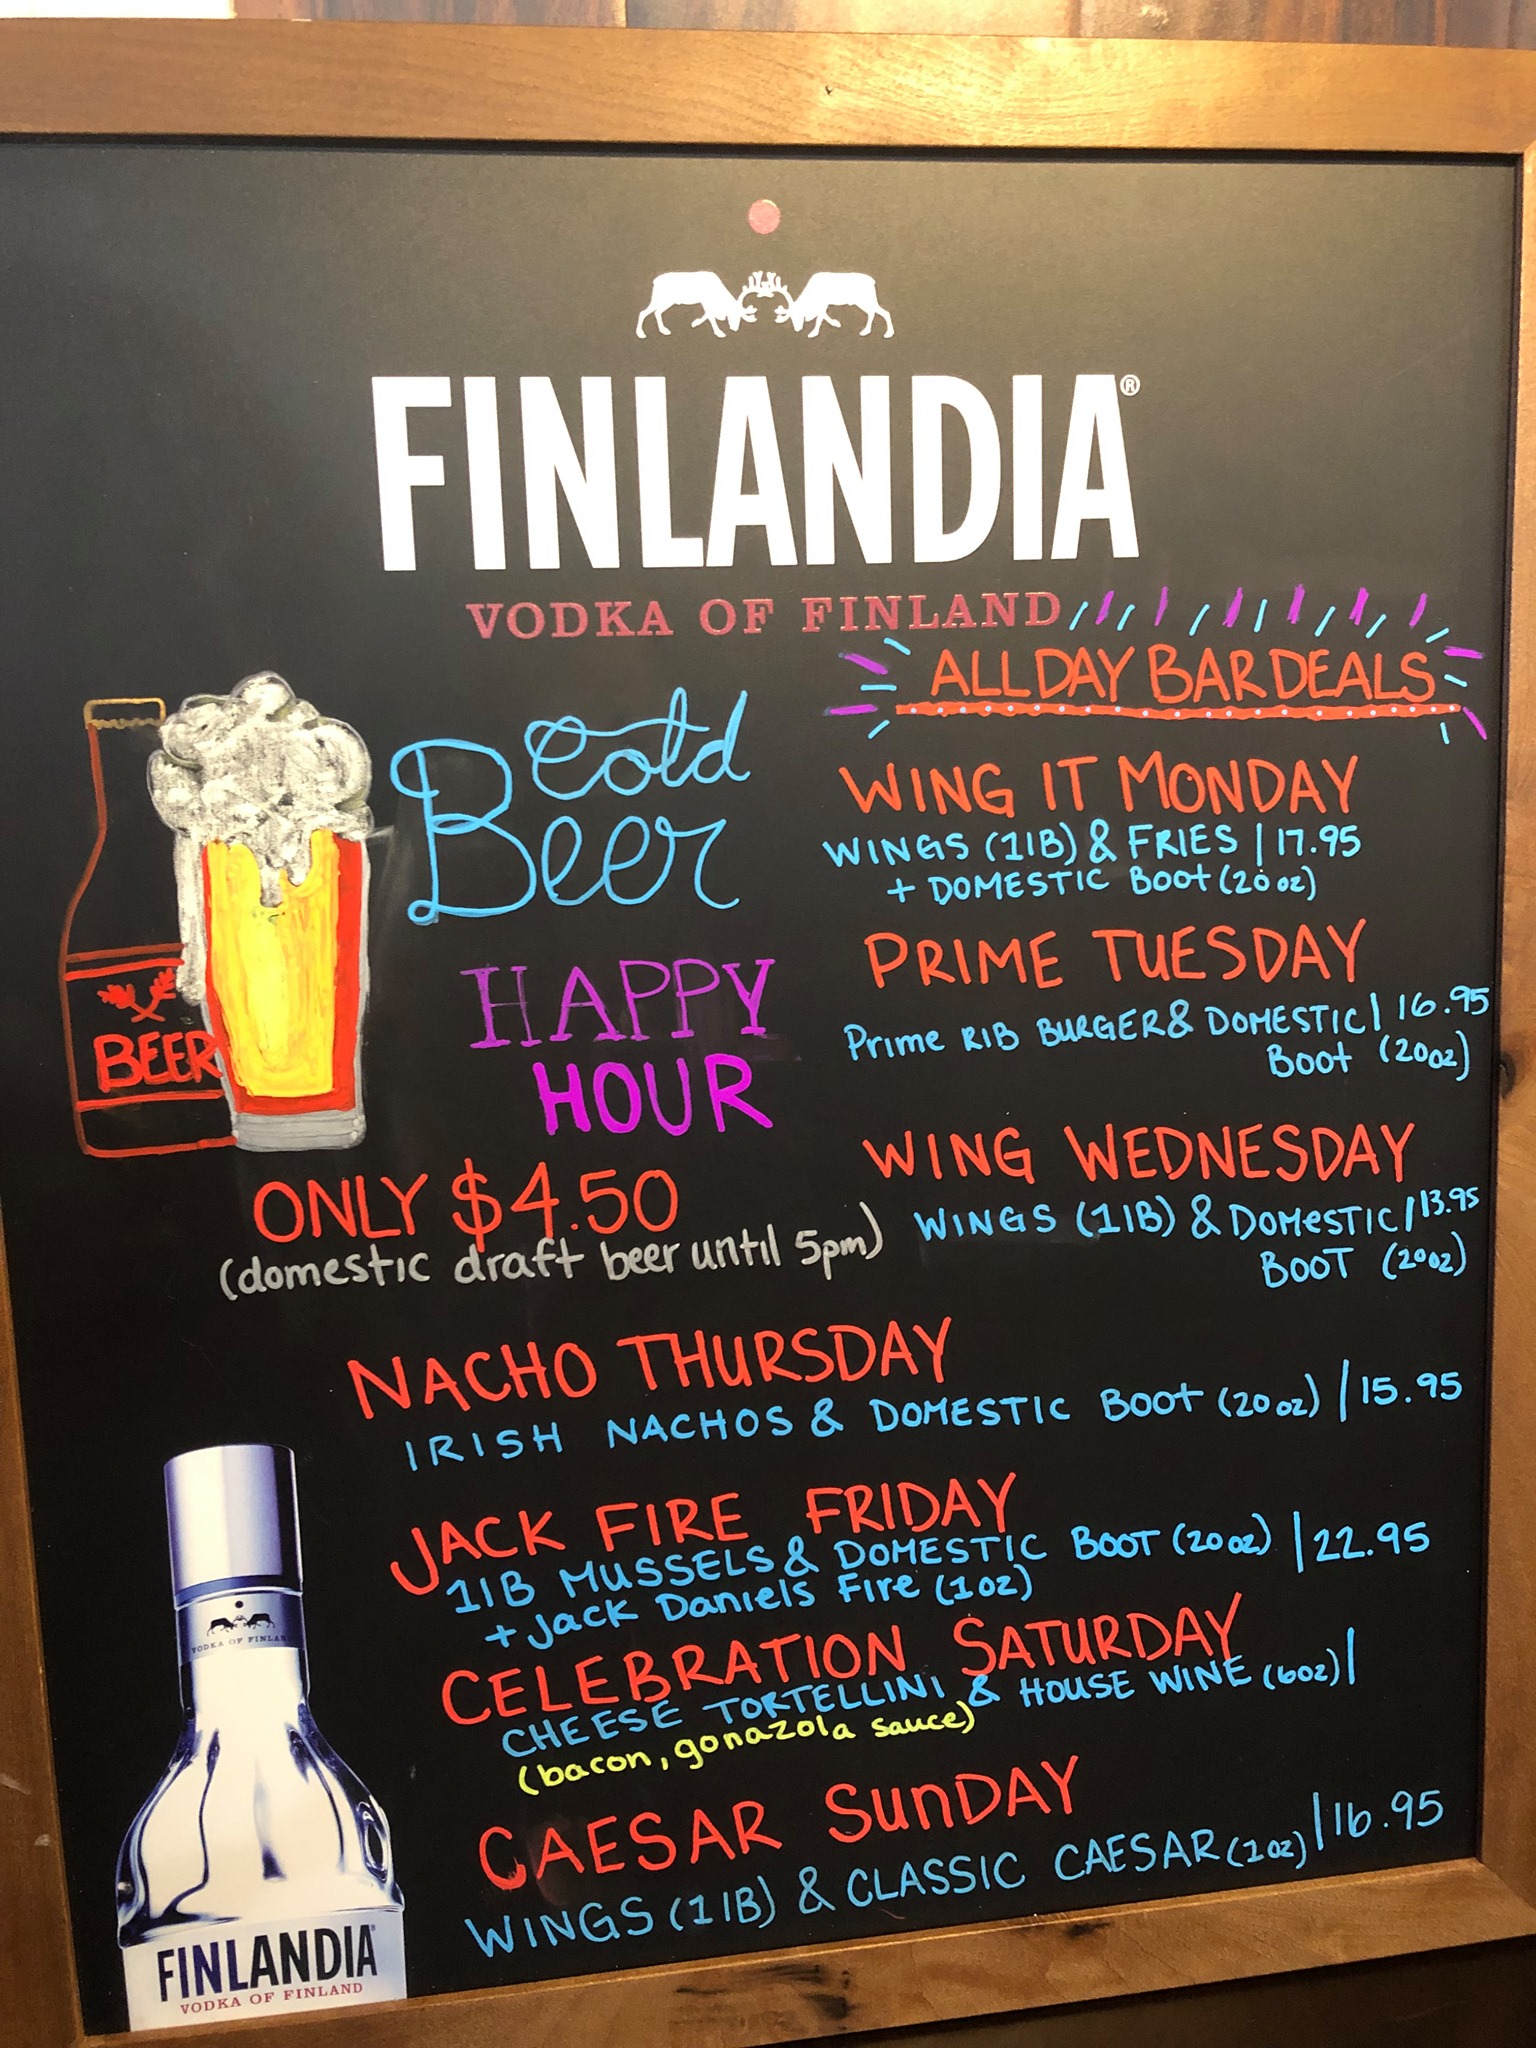 FINLANDIA®
VODKA OF FINLAND
ALL DAY BAR DEALS
Cold
Beer
BEER
HAPPY
HOUR
ONLY $4.50
(domestic draft beer until 5pm)
WING IT MONDAY
WINGS (1lB) & FRIES | 17.95
+ DOMESTIC Boot (20 oz)
PRIME TUESDAY
Prime RIB BURGER & DOMESTIC | 16.95
Boot (20oz)
WING WEDNESDAY
WINGS (1lB) & DOMESTIC / 13.95
BOOT (20oz)
NACHO THURSDAY
IRISH NACHOS & DOMESTIC Boot (20 oz) / 15.95
JACK FIRE FRIDAY
1lB MUSSELS & DOMESTIC BOOT (20 oz) | 22.95
+ Jack Daniels Fire (1 oz)
CELEBRATION SATURDAY
CHEESE TORTELLINI & HOUSE WINE (6oz) |
(bacon, gonazola sauce)
CAESAR SunDAY
WINGS (1lB) & CLASSIC CAESAR (1oz) | 16.95
VODKA OF FINLAN
FINLANDIA
VODKA OF FINLAND